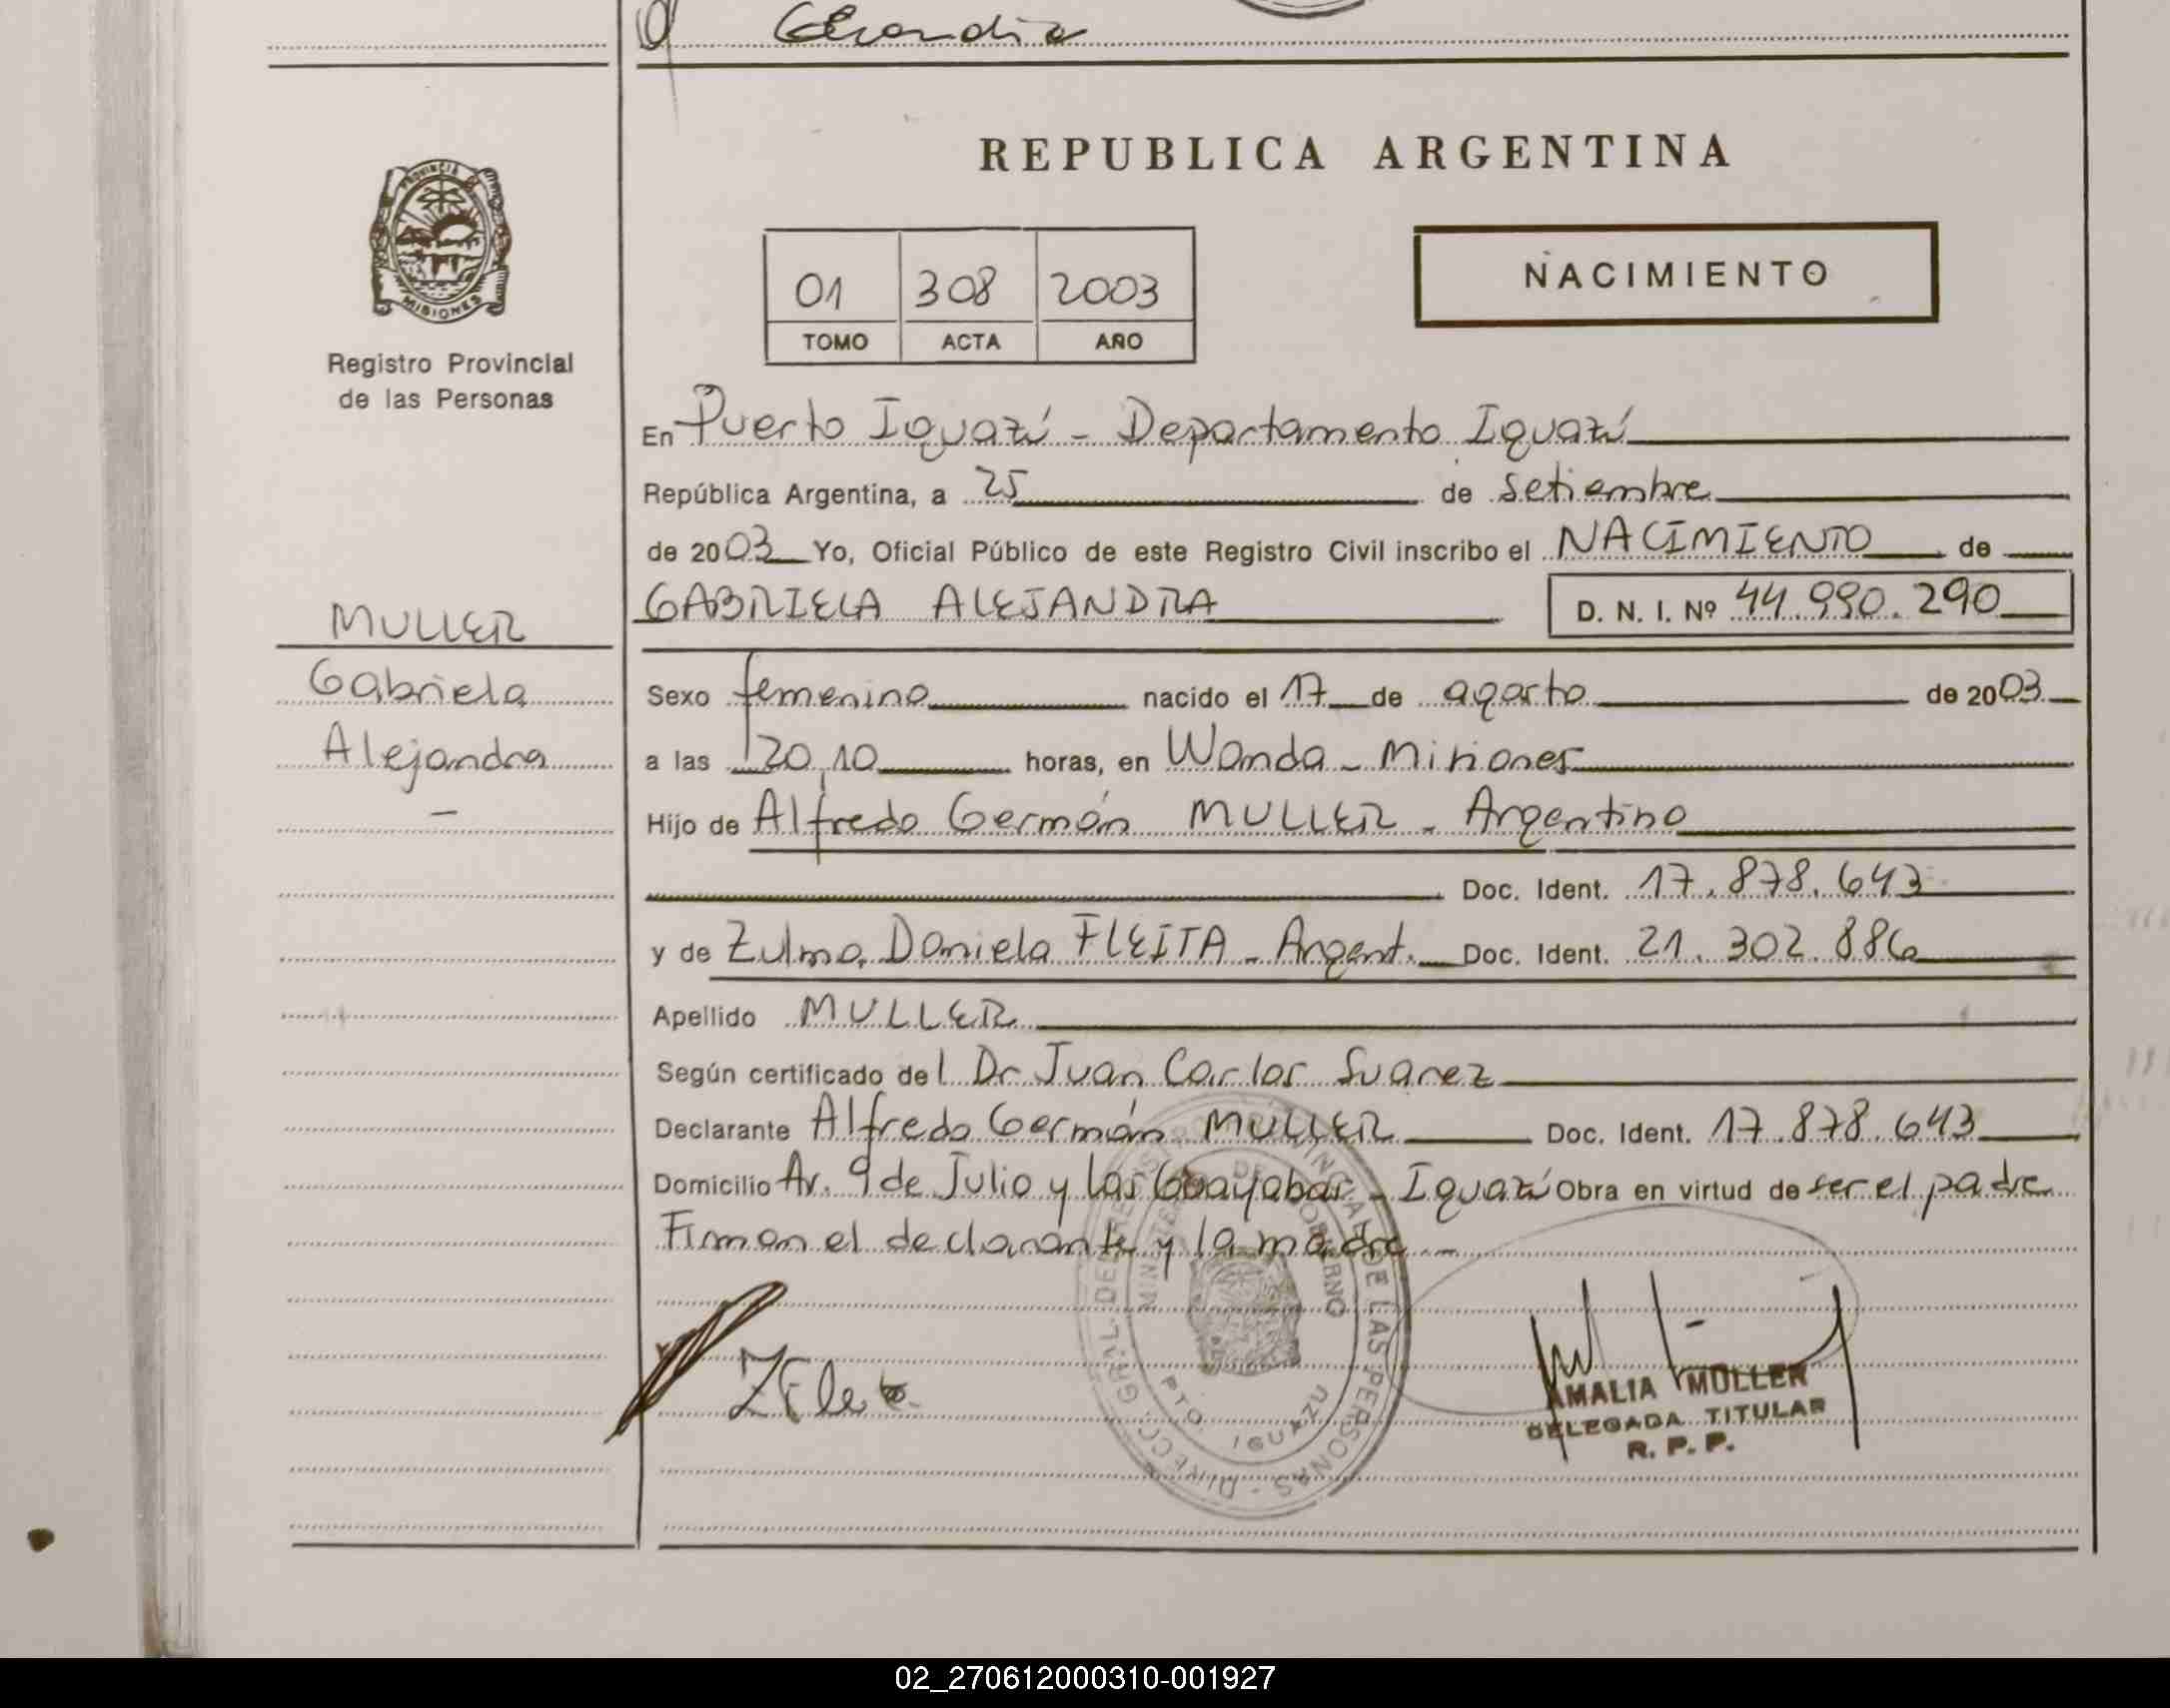 REPUBLICA ARGENTINA
PROVINCIA DE
MISIONES
Registro Provincial
de las Personas
01 308 2003
TOMO ACTA AÑO
NACIMIENTO
En Puerto Iguazú - Departamento Iguazú
República Argentina, a 25 de Setiembre
de 2003 Yo, Oficial Público de este Registro Civil inscribo el NACIMIENTO de
GABRIELA ALEJANDRA D. N. I. Nº 44.990.290
MULLER
Gabriela
Alejandra
-
Sexo femenino nacido el 17 de agosto de 2003
a las 20,10 horas, en Wanda - Misiones
Hijo de Alfredo Germán MULLER - Argentino
Doc. Ident. 17.878.643
y de Zulma Daniela FLEITA - Argent. Doc. Ident. 21.302.886
Apellido MULLER
Según certificado del Dr Juan Carlos Suarez
Declarante Alfredo Germán MULLER Doc. Ident. 17.878.643
Domicilio Av. 9 de Julio y Las Guayabas - Iguazú Obra en virtud de ser el padre
Firman el declarante y la madre.-
DIRECC. GRAL. DEL REGISTRO PROVINCIAL DE LAS PERSONAS -
MINISTERIO DE GOBIERNO
PTO. IGUAZU
AMALIA MULLER
DELEGADA TITULAR
R. P. P.
02_270612000310-001927